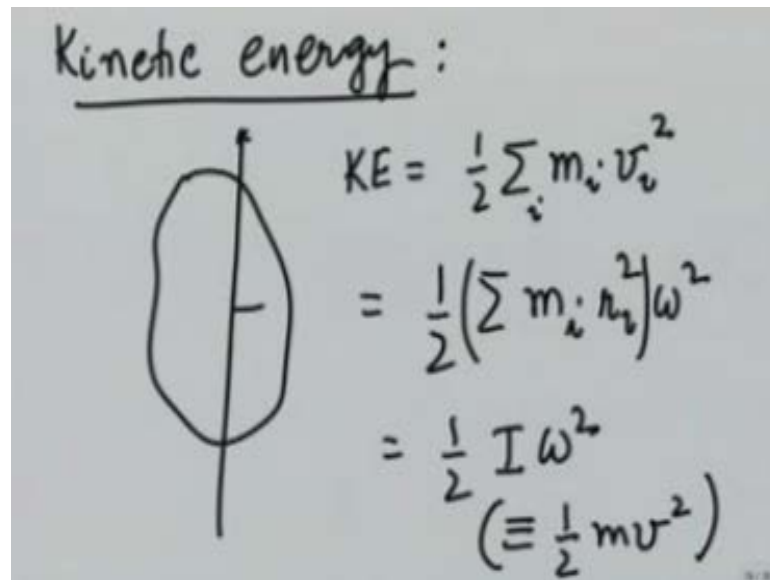 Kinetic energy :
KE = 1/2 Σ_i m_i v_i^2
= 1/2 (Σ m_i r_i^2) ω^2
= 1/2 I ω^2
(≡ 1/2 mv^2)